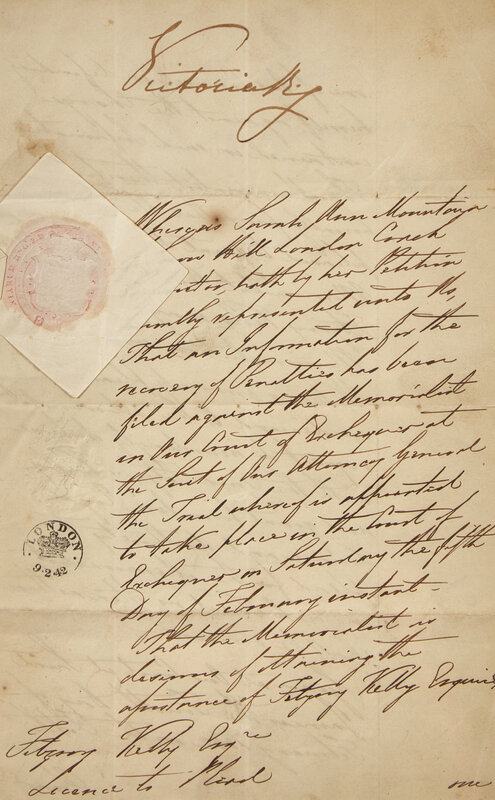 Victoria R
Whereas Sarah Ann Mountain
Hill London Coach
hath by her Petition
humbly represented unto Us,
That an Information for the
recovery of Penalties has been
filed against the Memorialist
in Our Court of Exchequer at
the Suit of Our Attorney General
the Trial whereof is appointed
to take place in the Court of
Exchequer on Saturday the fifth
Day of February instant –
That the Memorialist is
desirous of obtaining the
assistance of Fitzroy Kelly Esquire
Fitzroy Kelly Esqre
Licence to Plead
one
LONDON
9·2·42